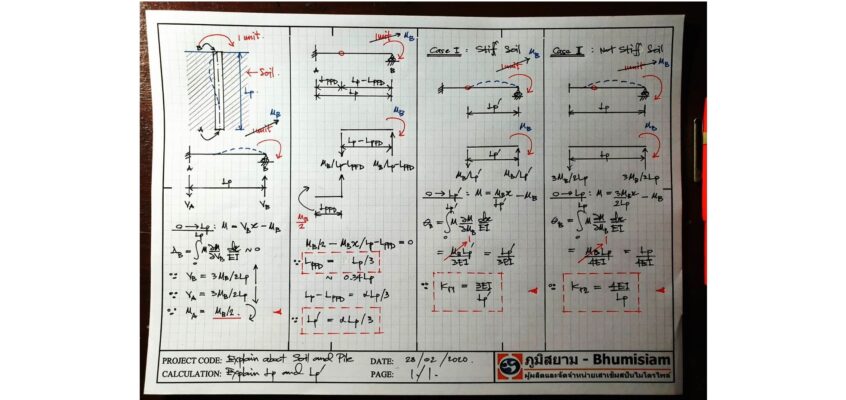 1 unit.
B
← Soil.
Lp
A
M_B
1 unit
A B
Lp
V_A V_B
0→Lp : M = V_B x − M_B
Δ_B = ∫₀^Lp M ∂M/∂V_B dx/EI ≈ 0
∵ V_B = 3M_B/2Lp
∵ V_A = 3M_B/2Lp
∵ M_A = M_B/2
1 unit M_B
A B
L_PPD Lp−L_PPD
Lp
M_B
Lp−L_PPD
M_B/Lp−L_PPD M_B/Lp−L_PPD
M_B/2
L_PPD
M_B/2 − M_B x/Lp−L_PPD = 0
∵ L_PPD = Lp/3
≈ 0.34Lp
Lp−L_PPD = 2Lp/3
∵ Lp' = 2Lp/3
Case I : Stiff Soil
1 unit M_B
Lp'
M_B
Lp'
M_B/Lp' M_B/Lp'
0→Lp' : M = M_B x/Lp' − M_B
θ_B = ∫₀^Lp' M ∂M/∂M_B dx/EI
= M_B Lp'/3EI = Lp'/3EI
1
∵ K_P1 = 3EI/Lp'
Case II : Not Stiff Soil
1 unit M_B
Lp
M_B
Lp
3M_B/2Lp 3M_B/2Lp
0→Lp : M = 3M_B x/2Lp − M_B
θ_B = ∫₀^Lp M ∂M/∂M_B dx/EI
= M_B Lp/4EI = Lp/4EI
1
∵ K_P2 = 4EI/Lp
PROJECT CODE: Explain about Soil and Pile DATE: 28/02/2020.
CALCULATION: Explain Lp and Lp' PAGE: 1/1.
ภูมิสยาม - Bhumisiam
ผู้ผลิตและจัดจำหน่ายเสาเข็มสปันไมโครไพล์